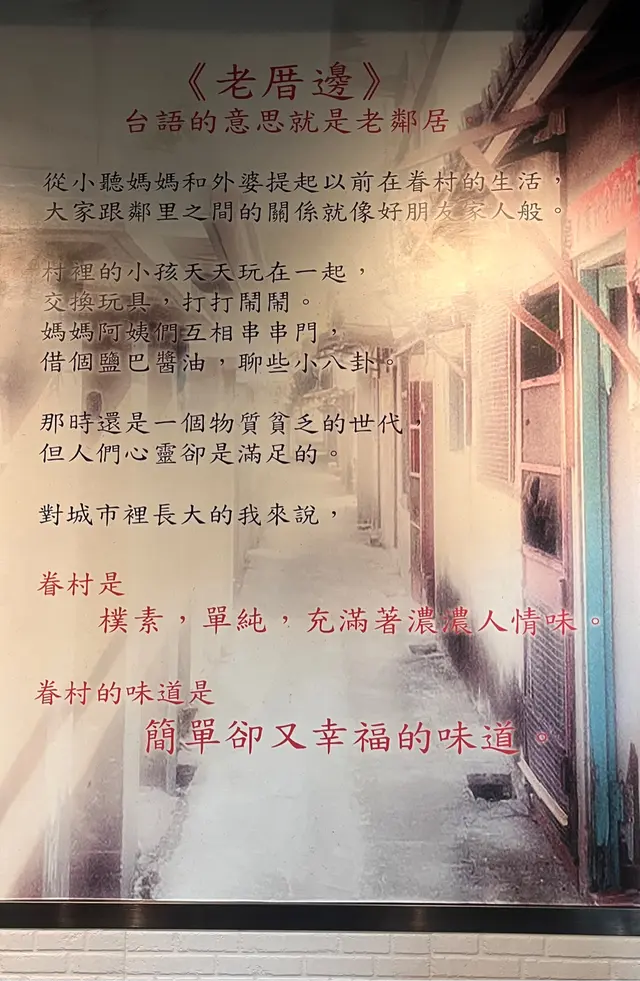 《老厝邊》
台語的意思就是老鄰居。
從小聽媽媽和外婆提起以前在眷村的生活，
大家跟鄰里之間的關係就像好朋友家人般。
村裡的小孩天天玩在一起，
交換玩具，打打鬧鬧。
媽媽阿姨們互相串串門，
借個鹽巴醬油，聊些小八卦。
那時還是一個物質貧乏的世代，
但人們心靈卻是滿足的。
對城市裡長大的我來說，
眷村是
樸素，單純，充滿著濃濃人情味。
眷村的味道是
簡單卻又幸福的味道。